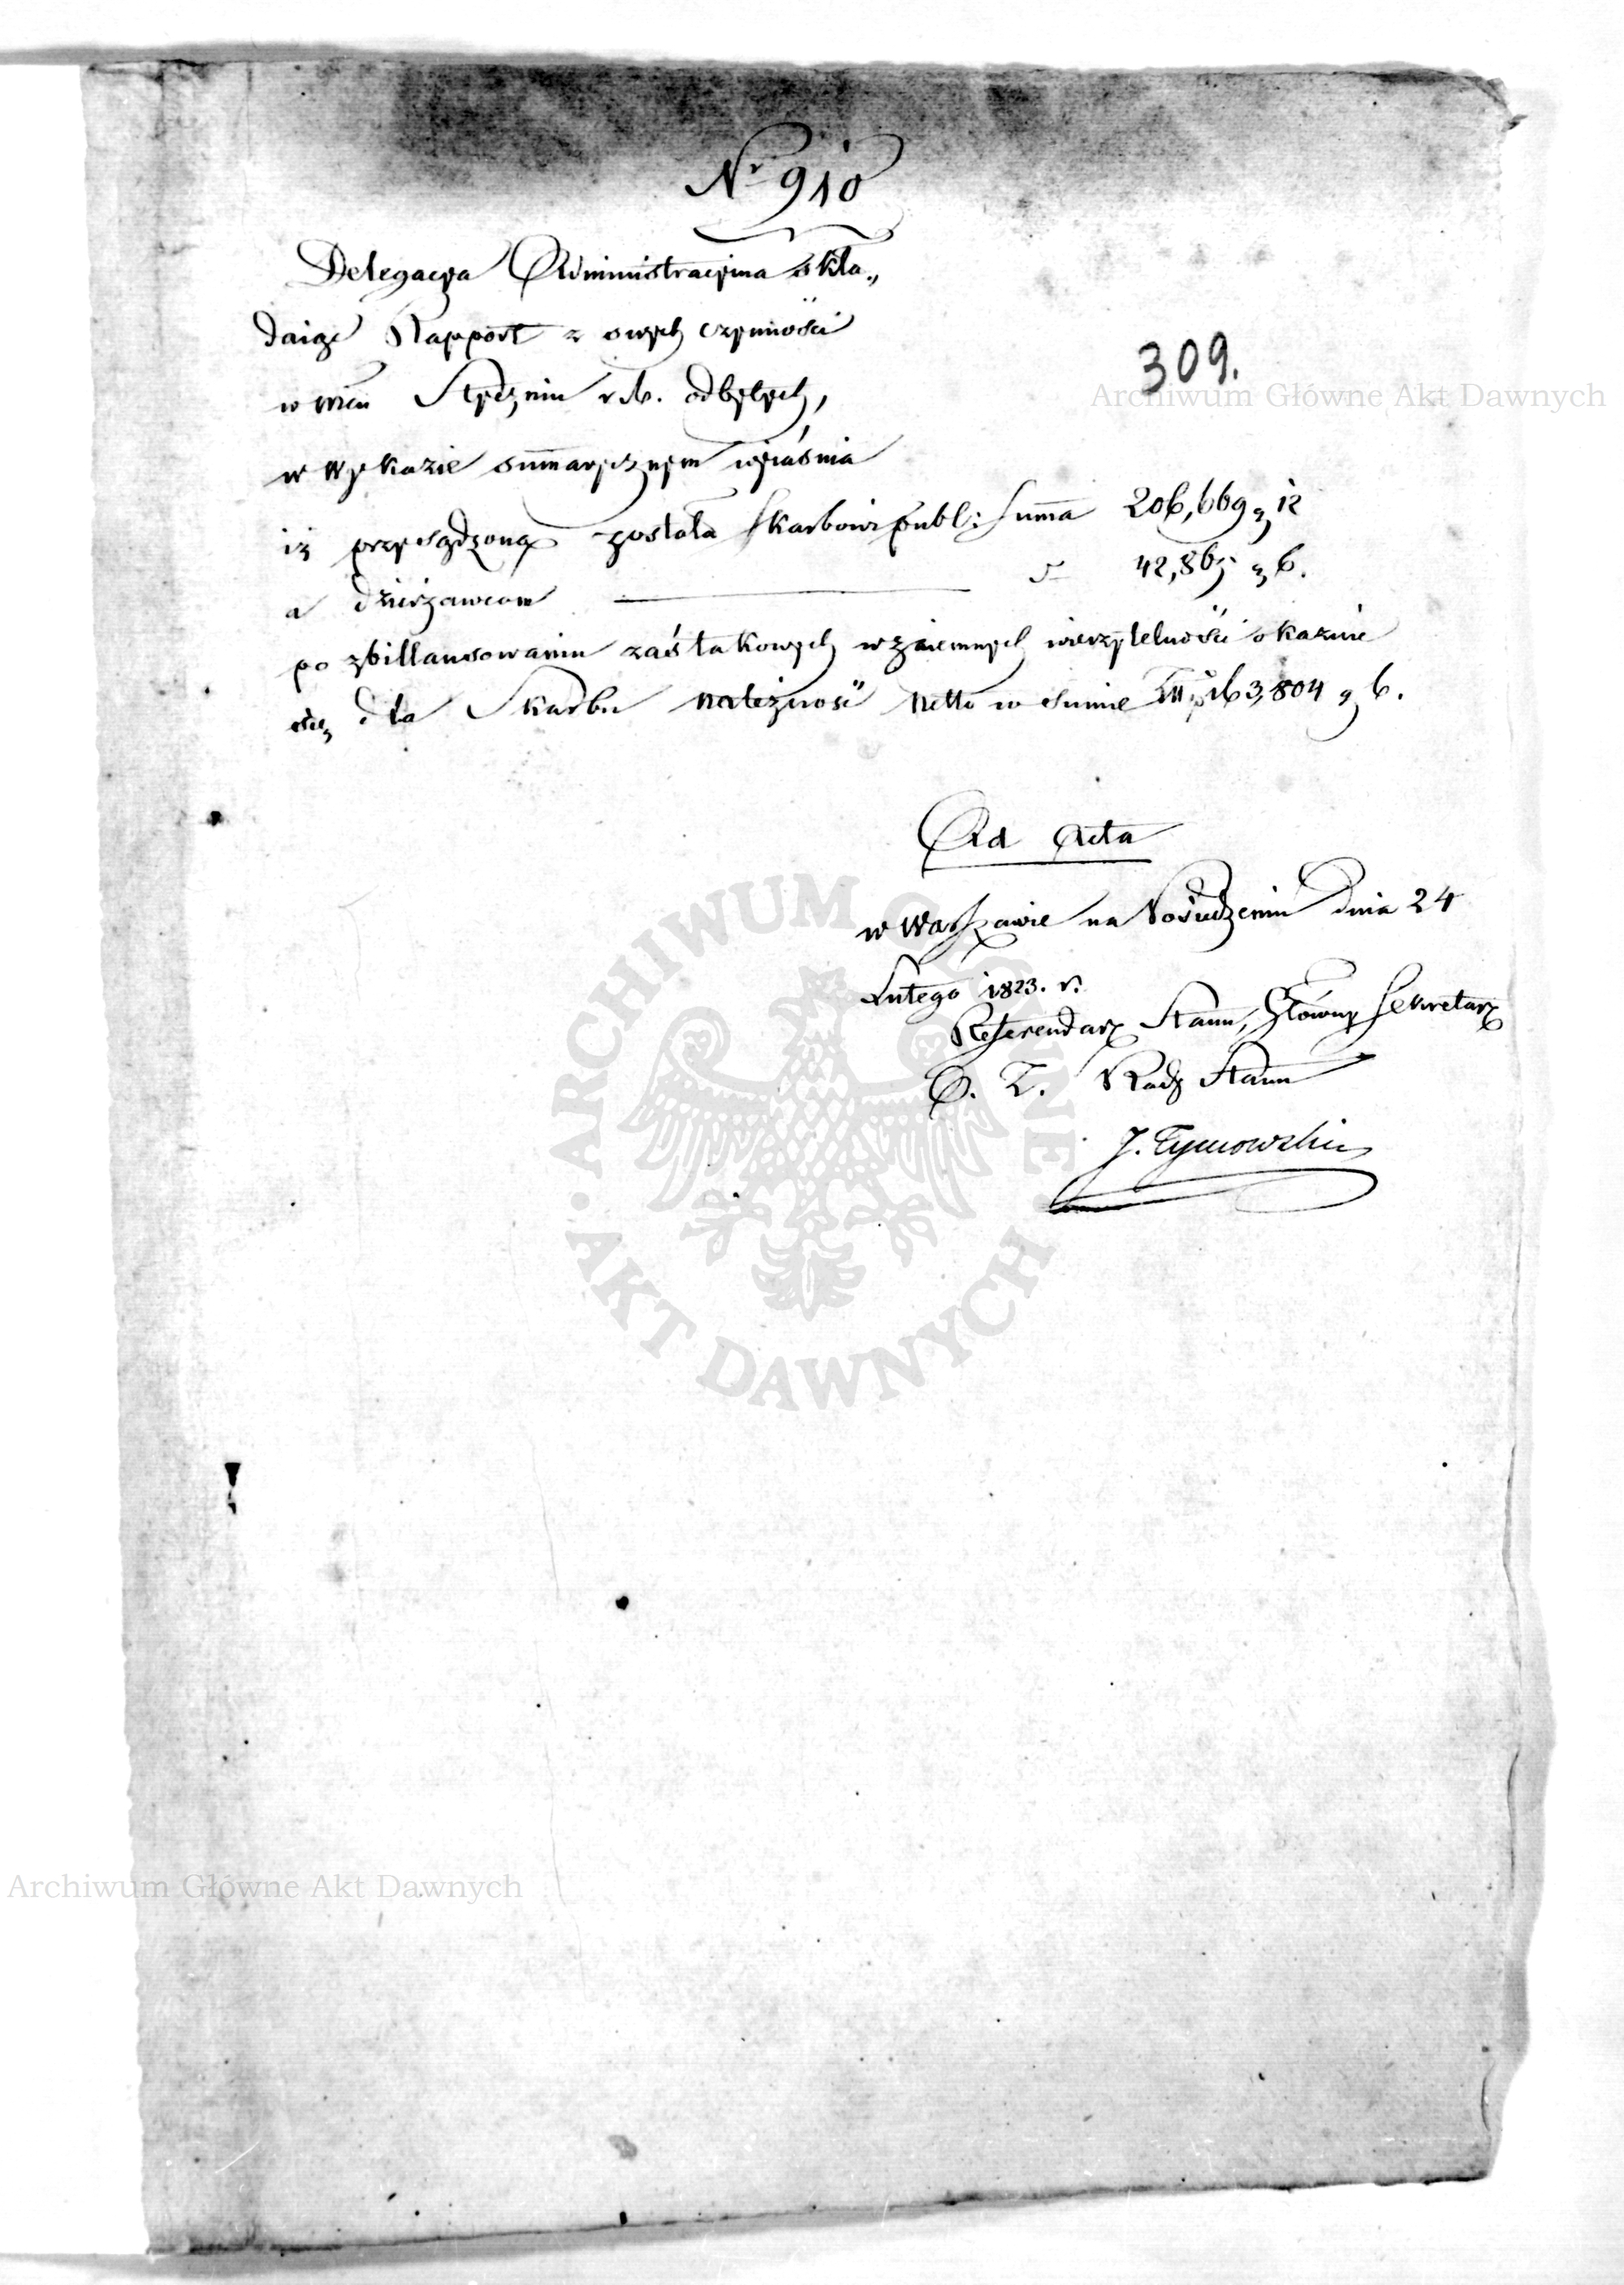 Nr 910
Delegacya Administracyina skła„
daiąc Rapport z swych czynności
309.
w mcu Styczniu r. b. odbytych,
w wykazie summarycznym wyiaśnia
iż przysądzoną została Skarbowi publ: Summa 206,669 g 12
a dzierżawcom 42,865 g 6.
po zbillansowaniu zaś takowych wzaiemnych wierzytelności okazuie
się dla Skarbu należność netto w summie 163,804 g 6.
Ad Acta
w Warszawie na Posiedzeniu Dnia 24
Lutego 1823. r.
Referendarz Stanu, Główny Sekretarz
Z. Rady Stanu
J. Tymowski
Archiwum Główne Akt Dawnych
ARCHIWUM GŁÓWNE AKT DAWNYCH
Archiwum Główne Akt Dawnych